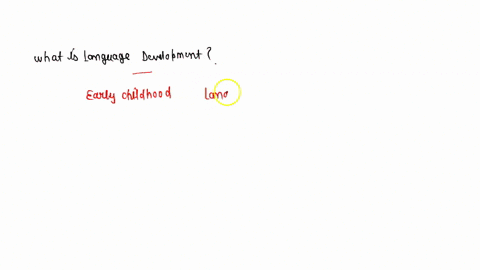 What is Language Development?
Early childhood Lang